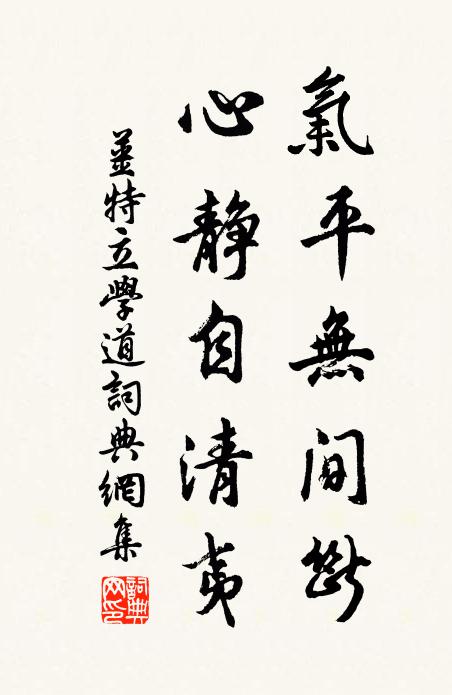 氣平無間斷
心静自清夷
姜特立學道詞典網集
詞典網印